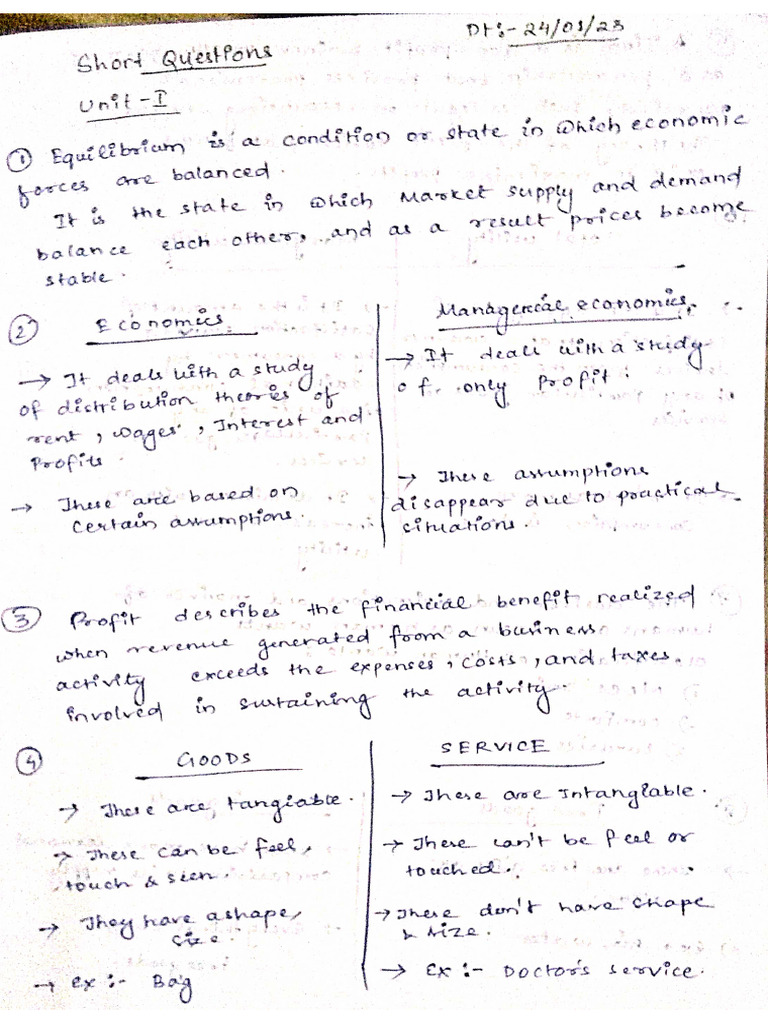 Dt:- 24/01/23
Short Questions
Unit-I
① Equilibrium is a condition or state in which economic
forces are balanced.
It is the state in which Market supply and demand
balance each other, and as a result prices become
stable.
② Economics
→ It deals with a study
of distribution theories of
rent, wages, Interest and
Profits.
→ These are based on
certain assumptions.
Managerial economics.
→ It deals with a study
of only Profit.
→ These assumptions
disappear due to practical
situations.
③ Profit describes the financial benefit realized
when revenue generated from a business
activity exceeds the expenses, costs, and taxes
involved in sustaining the activity.
④ GOODS
→ These are tangiable.
→ These can be feel,
touch & seen.
→ They have a shape,
size.
→ Ex:- Bag
SERVICE
→ These are Intangiable.
→ These can't be feel or
touched.
→ These don't have shape
& size.
→ Ex:- Doctor's service.